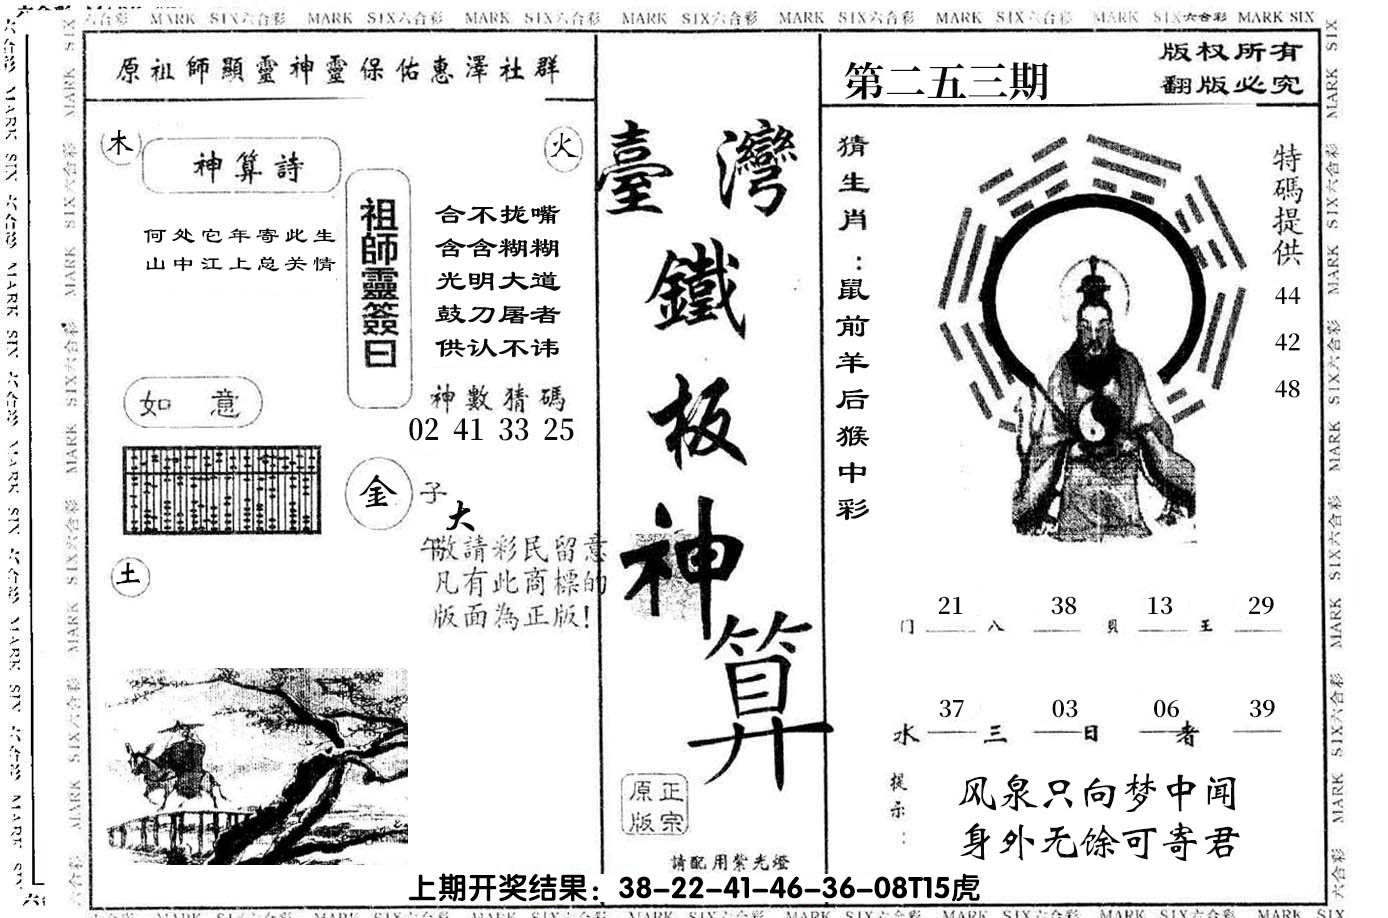 MARK SIX六合彩 MARK SIX六合彩 MARK SIX六合彩 MARK SIX六合彩 MARK SIX六合彩 MARK SIX六合彩 MARK SIX六合彩 MARK SIX
原祖師顯靈神靈保佑惠澤社群
木
火
神算詩
何处它年寄此生
山中江上总关情
祖師靈簽曰
合不拢嘴
含含糊糊
光明大道
鼓刀屠者
供认不讳
神數猜碼
02 41 33 25
如意
金
子
大
午
敬請彩民留意
凡有此商標的
版面為正版!
土
臺灣
鐵
板
神
算
正宗
原版
請配用紫光燈
第二五三期
版权所有
翻版必究
猜生肖:鼠前羊后猴中彩
特碼提供
44
42
48
21 38 13 29
门 八 貝 王
37 03 06 39
水 三 日 者
提示:
风泉只向梦中闻
身外无馀可寄君
上期开奖结果：38-22-41-46-36-08T15虎